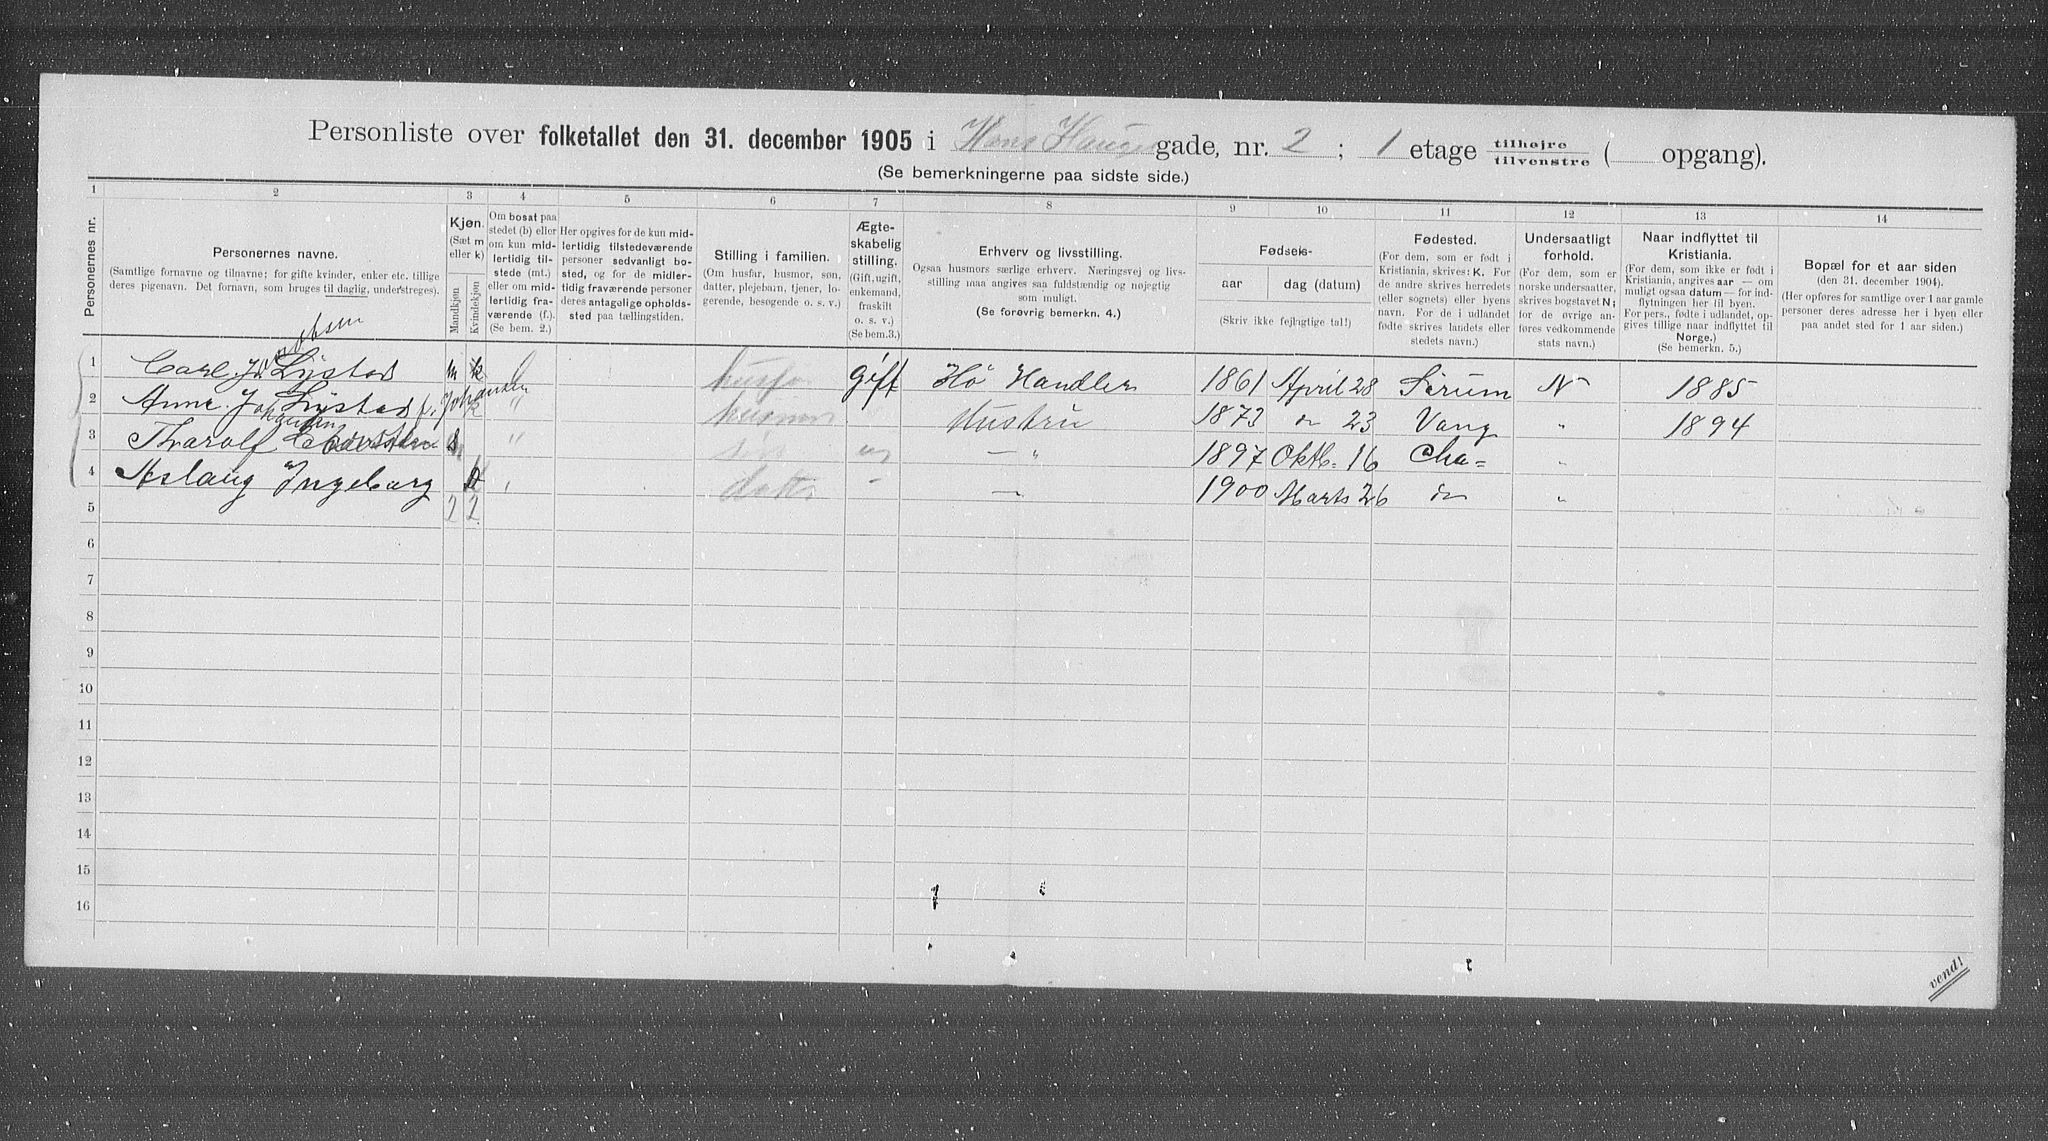 Personliste over folketallet den 31. december 1905 i Hans Hauges gade, nr. 2 ; 1 etage tilhøjre tilvenstre ( opgang).
(Se bemerkningerne paa sidste side.)
1 2 3 4 5 6 7 8 9 10 11 12 13 14
Personernes nr.
Personernes navne.
(Samtlige fornavne og tilnavne; for gifte kvinder, enker etc. tillige
deres pigenavn. Det fornavn, som bruges til daglig, understreges).
Kjøn.
(Sæt m
eller k)
Mandkjøn
Kvindekjøn
Om bosat paa
stedet (b) eller
om kun mid-
lertidig til-
stede (mt.)
eller om mid-
lertidig fra-
værende (f.).
(Se bem. 2.)
Her opgives for de kun mid-
lertidig tilstedeværende
personer sedvanlig bo-
sted, og for de midler-
tidig fraværende personer
deres antagelige opholds-
sted paa tællingstiden.
Stilling i familien.
(Om husfar, husmor, søn,
datter, plejebarn, tjener, lo-
gerende, besøgende o. s. v.)
Ægte-
skabelig
stilling.
(Gift, ugift,
enkemand,
fraskilt
o. s. v.)
(Se bem.3.)
Erhverv og livsstilling.
Ogsaa husmors særlige erhverv. Næringsvej og livs-
stilling maa angives saa fuldstændig og nøjegtig
som muligt.
(Se forøvrig bemerkn. 4.)
Fødsels-
aar dag (datum)
(Skriv ikke fejlagtige tal!)
Fødested.
(For dem, som er født i
Kristiania, skrives: K. For
de andre skrives herredets
(eller sognets) eller byens
navn. For de i udlandet
fødte skrives landets eller
stedets navn.)
Undersaatligt
forhold.
(For dem, som er
norske undersaatter,
skrives bogstavet N;
for de øvrige an-
føres vedkommende
stats navn.)
Naar indflyttet til
Kristiania.
(For dem, som ikke er født i
Kristiania, angives aar — om
muligt ogsaa datum — for ind-
flytningen her til byen.
For pers., fødte i udlandet, op-
gives tillige naar indflyttet til
Norge.)
(Se bemerkn. 5.)
Bopæl for et aar siden
(den 31. december 1904).
(Her opføres for samtlige over 1 aar gamle
personer deres adresse her i byen eller
paa andet sted for 1 aar siden.)
1 Carl Lystad m husfa gift Hø Handler 1861 April 28 Sørum N 1885
2 Anna Joh Lystad f. Johansen k " husmor Hustru 1873 do 23 Vang " 1894
3 Tharalf " søn ug — " 1897 Oktb. 16 Cha= "
4 Aslaug Ingeborg datter — — 1900 Marts 26 do "
5 2 2
6
7
8
9
10
11
12
13
14
15
16
vend!